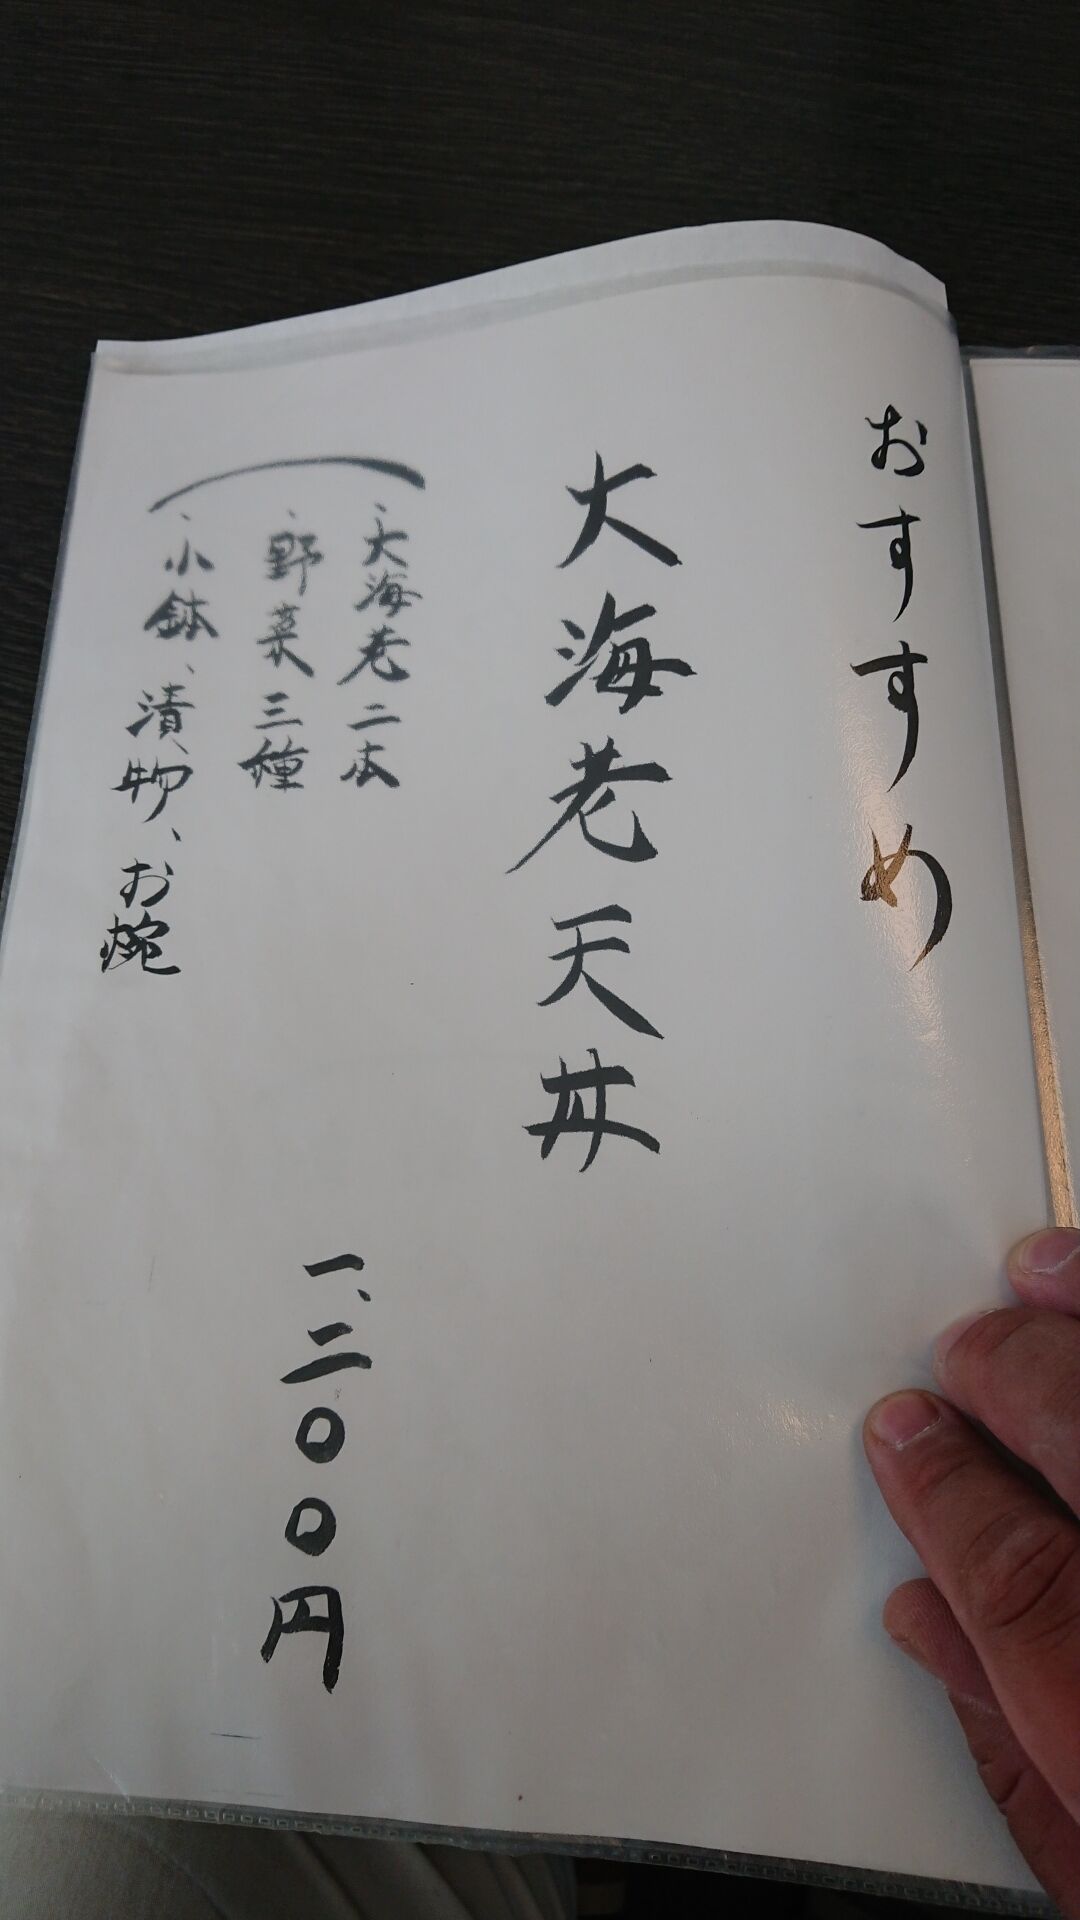 おすすめ
大海老天丼
・大海老二本
・野菜三種
・小鉢、漬物、お椀
一、二〇〇円